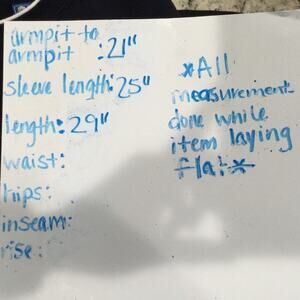 armpit to
armpit : 21"
sleeve length: 25"
length: 29"
waist:
hips:
inseam:
rise:
*All
measurement
done while
item laying
flat*